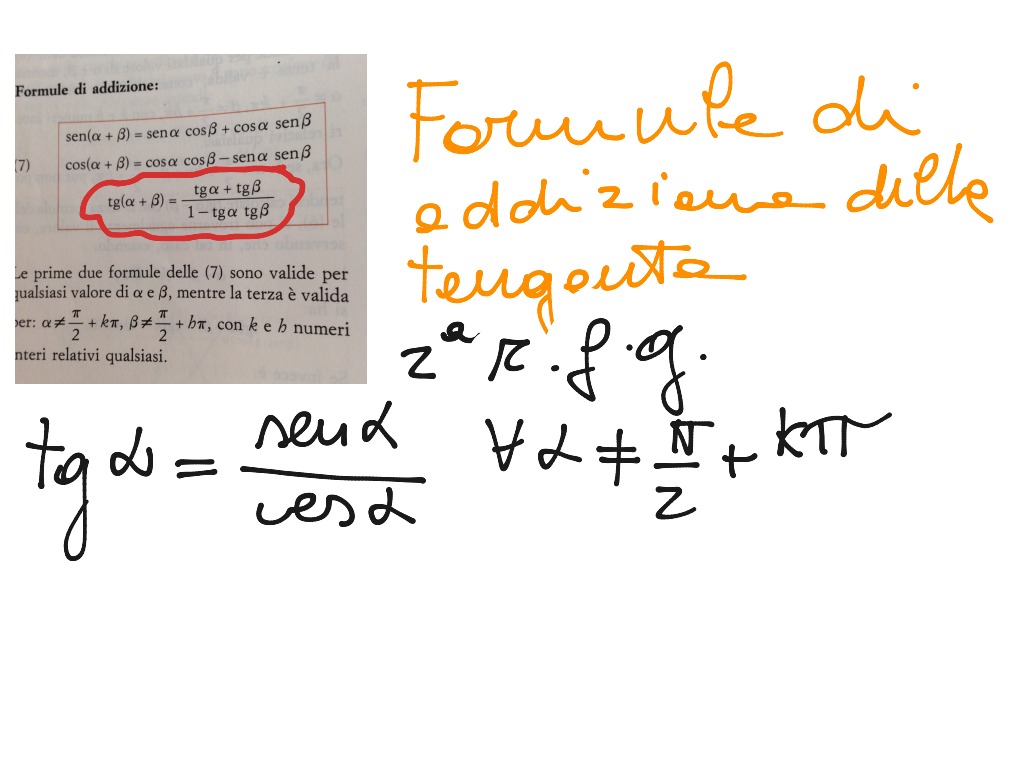 Formule di addizione:
sen(α + β) = sen α cos β + cos α sen β
(7) cos(α + β) = cos α cos β − sen α sen β
tg(α + β) = (tg α + tg β) / (1 − tg α tg β)
Le prime due formule delle (7) sono valide per
qualsiasi valore di α e β, mentre la terza è valida
per: α ≠ π/2 + kπ, β ≠ π/2 + hπ, con k e h numeri
interi relativi qualsiasi.
Formule di
addizione della
tangente
2ª r.f.g.
tg α = sen α / cos α ∀ α ≠ π/2 + kπ